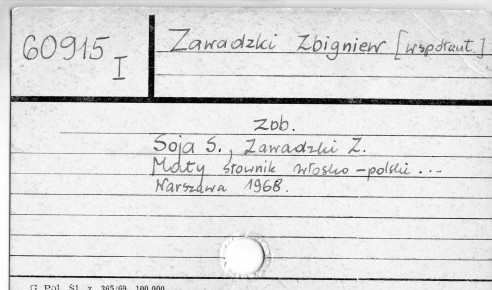 60915 I
Zawadzki Zbigniew [współaut.]
zob.
Soja S., Zawadzki Z.
Mały słownik włosko-polski ...
Warszawa 1968.
G. Pol. Śl. z. 365/69 100.000